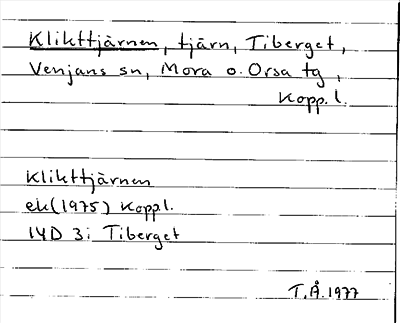 Klikttjärnen, tjärn, Tiberget,
Venjans sn, Mora o. Orsa tg,
Kopp. l.
Klikttjärnen
ek(1975) Koppl.
14D 3i Tiberget
T.Å. 1977